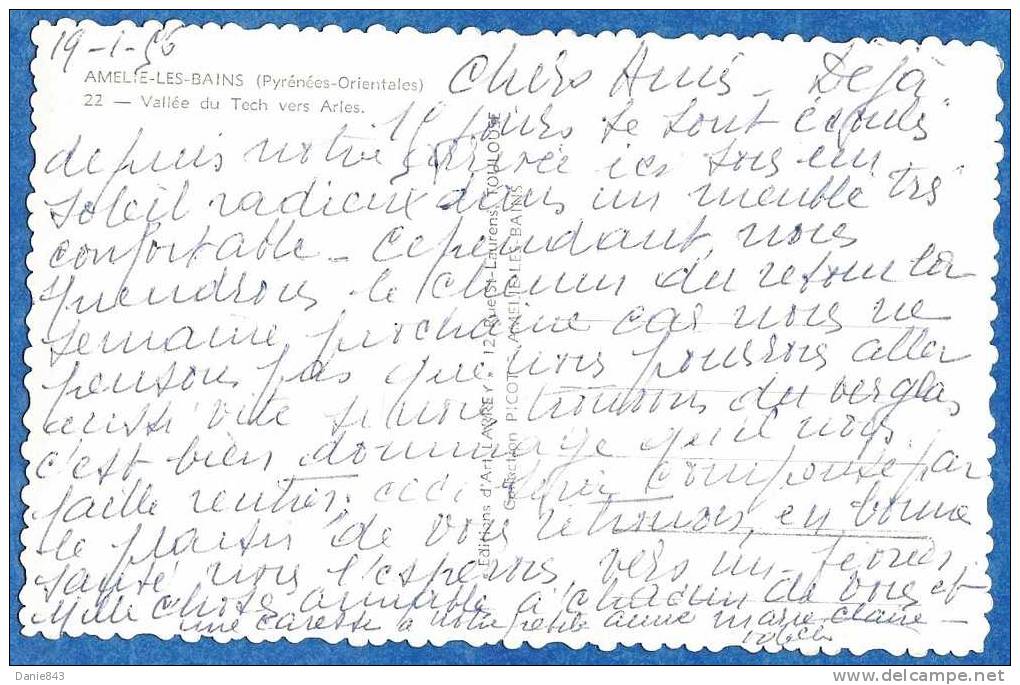 19-1-56
AMELIE-LES-BAINS (Pyrénées-Orientales)
22 — Vallée du Tech vers Arles.
Chers Amis - Déjà
jours se sont écoulés
depuis notre arrivée ici sous un
soleil radieux dans un meublé très
confortable - Cependant, nous
prendrons le chemin du retour la
semaine prochaine car nous ne
pensons pas que nous pourrons aller
aussi vite si nous trouvons du verglas
c'est bien dommage qu'il nous
faille rentrer, ceci sera compensé par
le plaisir de vous retrouver, en bonne
santé nous l'espérons vers mi-février
Mille choses aimables à chacun de vous et
une caresse à notre petite Anne Marie Claire -
Editions d'Art LARREY - 12 Rue St-Laurens, TOULOUSE
Collection PICOT - AMELIE-LES-BAINS
Danie843
www.delcampe.net